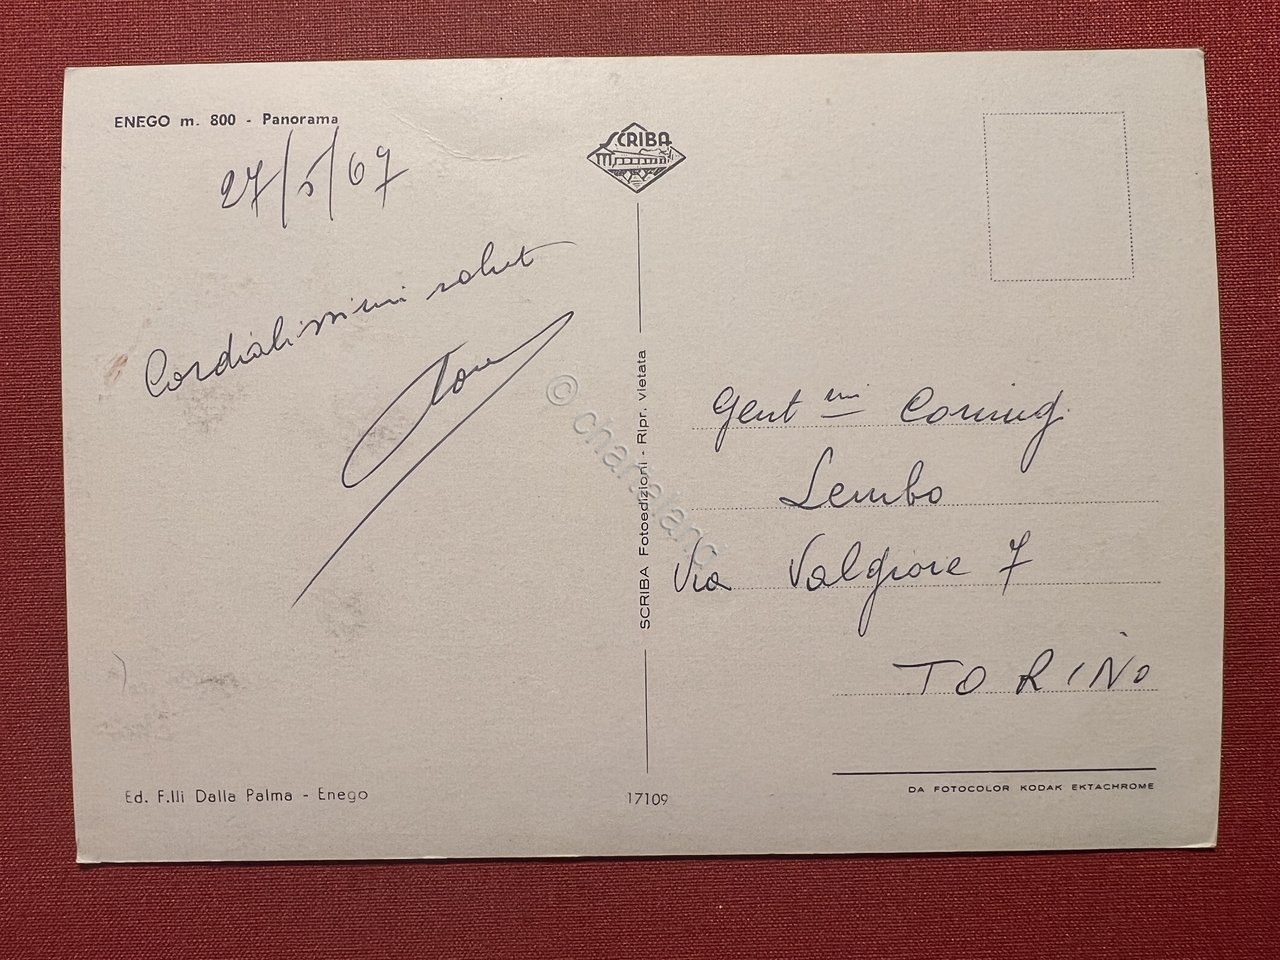 ENEGO m. 800 - Panorama
27/5/67
Cordialissimi salut
SCRIBA
SCRIBA Fotoedizioni - Ripr. vietata
Gent mi Coniug.
Lembo
Via Valgioie 7
TORINO
Ed. F.lli Dalla Palma - Enego
17109
DA FOTOCOLOR KODAK EKTACHROME